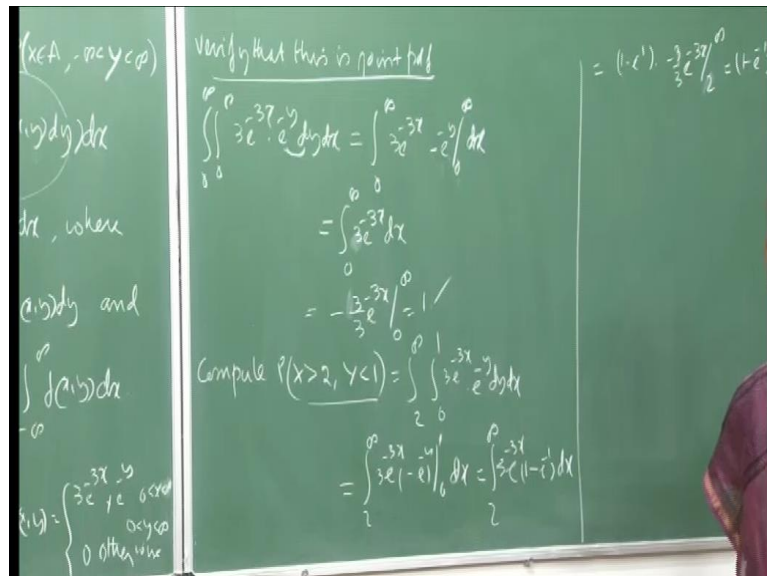 (x∈A, -∞<y<∞)
,y)dy)dx
dx, where
(x,y)dy and
∫_{-∞}^{∞} f(x,y)dx
(x,y) = { 3e^{-3x} e^{-y} 0<x<∞
0<y<∞
0 otherwise
Verify that this is joint pdf
∫_0^∞ ∫_0^∞ 3e^{-3x}·e^{-y} dy dx = ∫_0^∞ 3e^{-3x} -e^{-y}/_0^∞ dx
= ∫_0^∞ 3e^{-3x} dx
= -3/3 e^{-3x}/_0^∞ = 1
Compute P(X>2, Y<1) = ∫_2^∞ ∫_0^1 3e^{-3x}·e^{-y} dy dx
= ∫_2^∞ 3e^{-3x}(-e^{-y})|_0^1 dx = ∫_2^∞ 3e^{-3x}(1-e^{-1})dx
= (1-e^{-1})· -3/3 e^{-3x}/_2^∞ = (1-e^{-1}